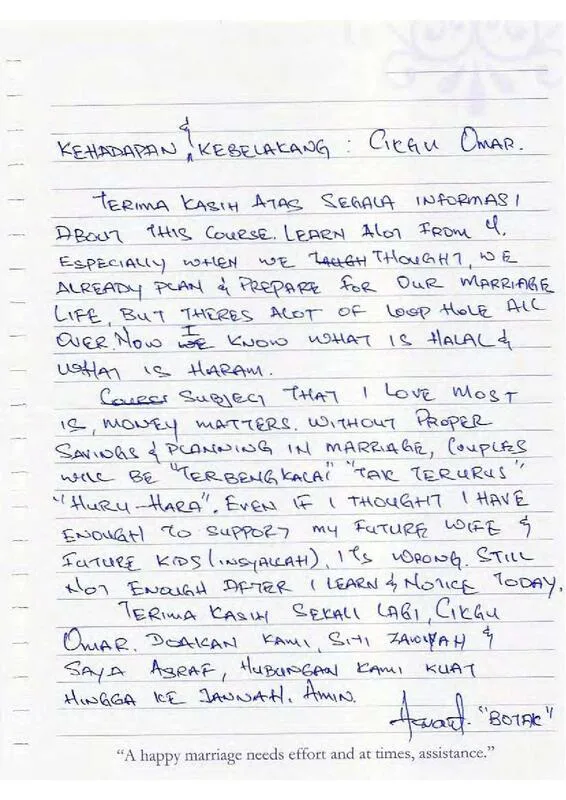 &
KEHADAPAN KEBELAKANG : CIKGU OMAR.
TERIMA KASIH ATAS SEGALA INFORMASI
ABOUT THIS COURSE. LEARN ALOT FROM U.
ESPECIALLY WHEN WE THOUGHT, WE
ALREADY PLAN & PREPARE FOR OUR MARRIAGE
LIFE, BUT THERES ALOT OF LOOP HOLE ALL
OVER. NOW I KNOW WHAT IS HALAL &
WHAT IS HARAM.
SUBJECT THAT I LOVE MOST
IS, MONEY MATTERS. WITHOUT PROPER
SAVINGS & PLANNING IN MARRIAGE, COUPLES
WILL BE "TERBENGKALAI" "TAK TERURUS"
"HURU-HARA". EVEN IF I THOUGHT I HAVE
ENOUGH TO SUPPORT MY FUTURE WIFE &
FUTURE KIDS (INSYALLAH), ITS WRONG. STILL
NOT ENOUGH AFTER I LEARN & NOTICE TODAY.
TERIMA KASIH SEKALI LAGI, CIKGU
OMAR. DOAKAN KAMI, SITI ZAWIYAH &
SAYA ASRAF, HUBUNGAN KAMI KUAT
HINGGA KE JANNAH. AMIN.
"BOTAK"
"A happy marriage needs effort and at times, assistance."